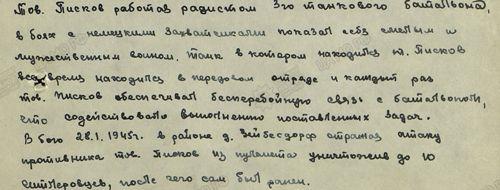 Тов. Писков работая радистом 3го танкового баталиона,
в боях с немецкими захватчиками показал себя смелым и
мужественным воином. танк в котором находился т. Писков
все время находился в передовом отряде и каждый раз
тов. Писков обеспечивал бесперебойную связь с баталионом,
что содействовало выполнению поставленных задач.
В бою 28.1.1945г. в районе д. Зейбесдорф отражая атаку
противника тов. Писков из пулемета уничтожив до 10
гитлеровцев, после чего сам был ранен.